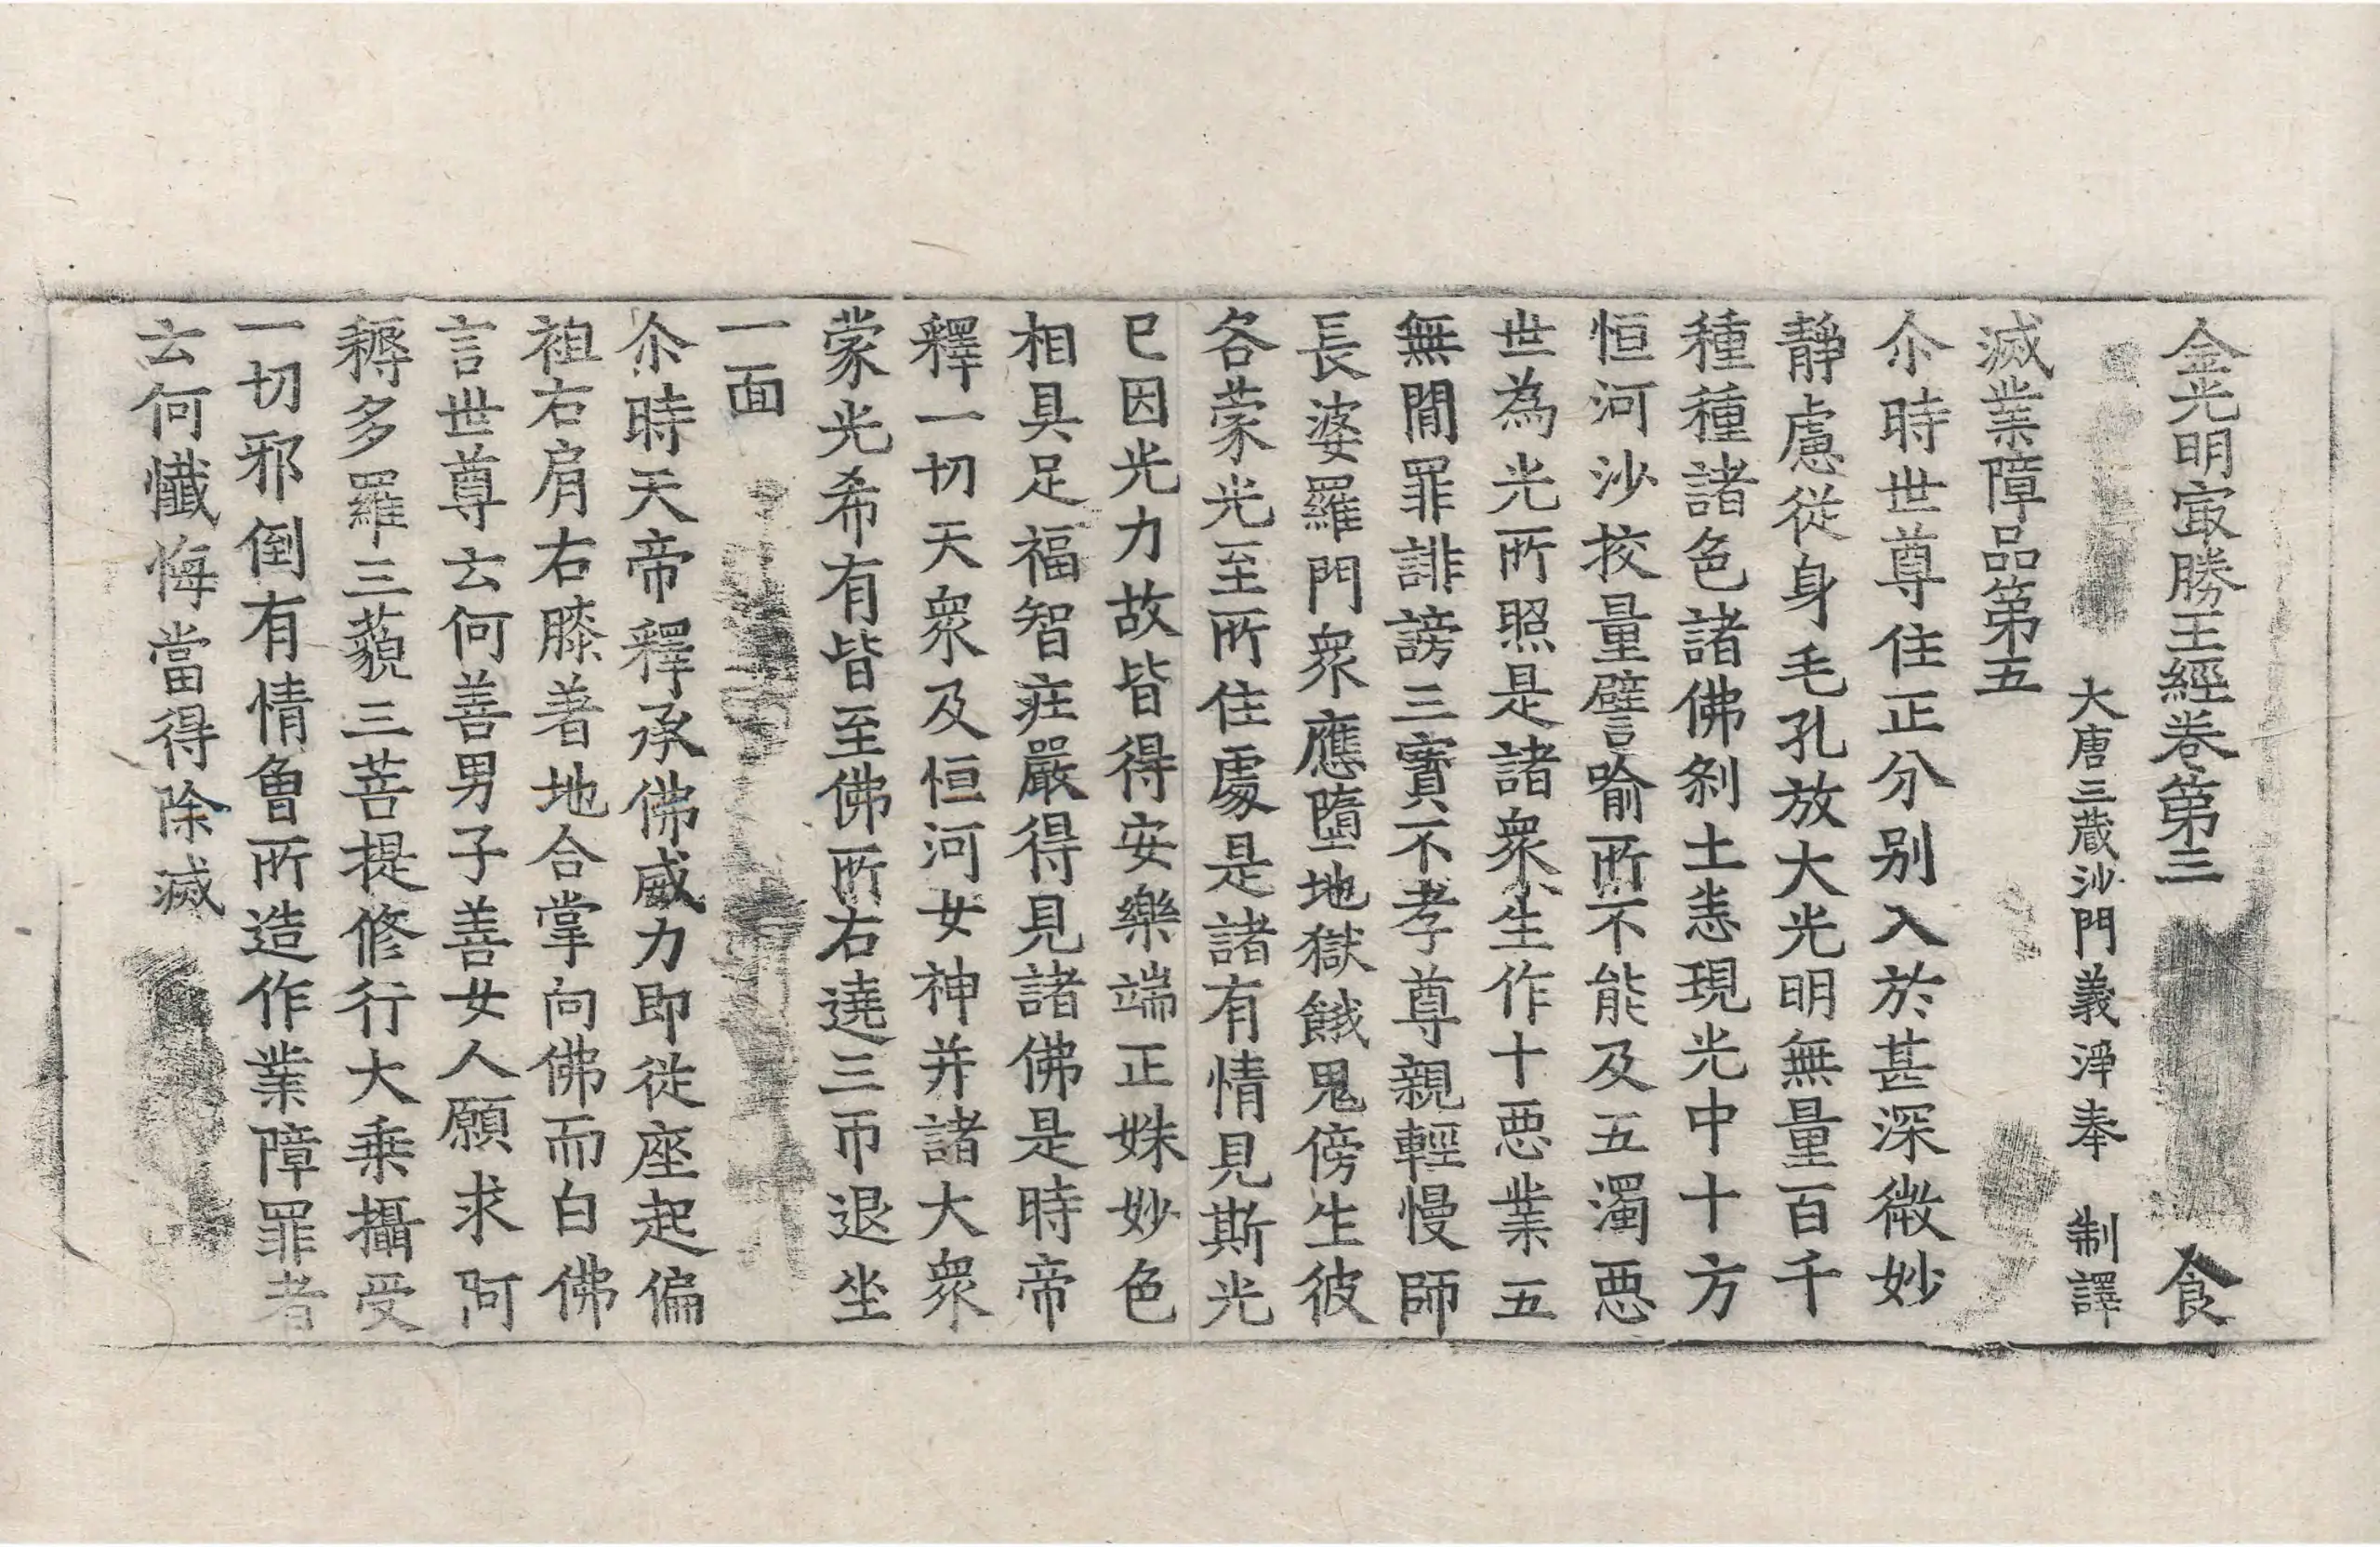 金光明㝡勝王經卷第三　食
大唐三藏沙門義淨奉　制譯
滅業障品第五
尒時世尊住正分別入於甚深微妙
靜慮從身毛孔放大光明無量百千
種種諸色諸佛刹土悉現光中十方
恒河沙挍量譬喻所不能及五濁惡
世為光所照是諸衆生作十惡業五
無閒罪誹謗三寶不孝尊親輕慢師
長婆羅門衆應墮地獄餓鬼傍生彼
各蒙光至所住處是諸有情見斯光
已因光力故皆得安樂端正姝妙色
相具足福智莊嚴得見諸佛是時帝
釋一切天衆及恒河女神并諸大衆
蒙光希有皆至佛所右遶三帀退坐
一面
尒時天帝釋承佛威力即從座起偏
袒右肩右膝著地合掌向佛而白佛
言世尊云何善男子善女人願求阿
耨多羅三藐三菩提修行大乗攝受
一切邪倒有情曾所造作業障罪者
云何懺悔當得除滅